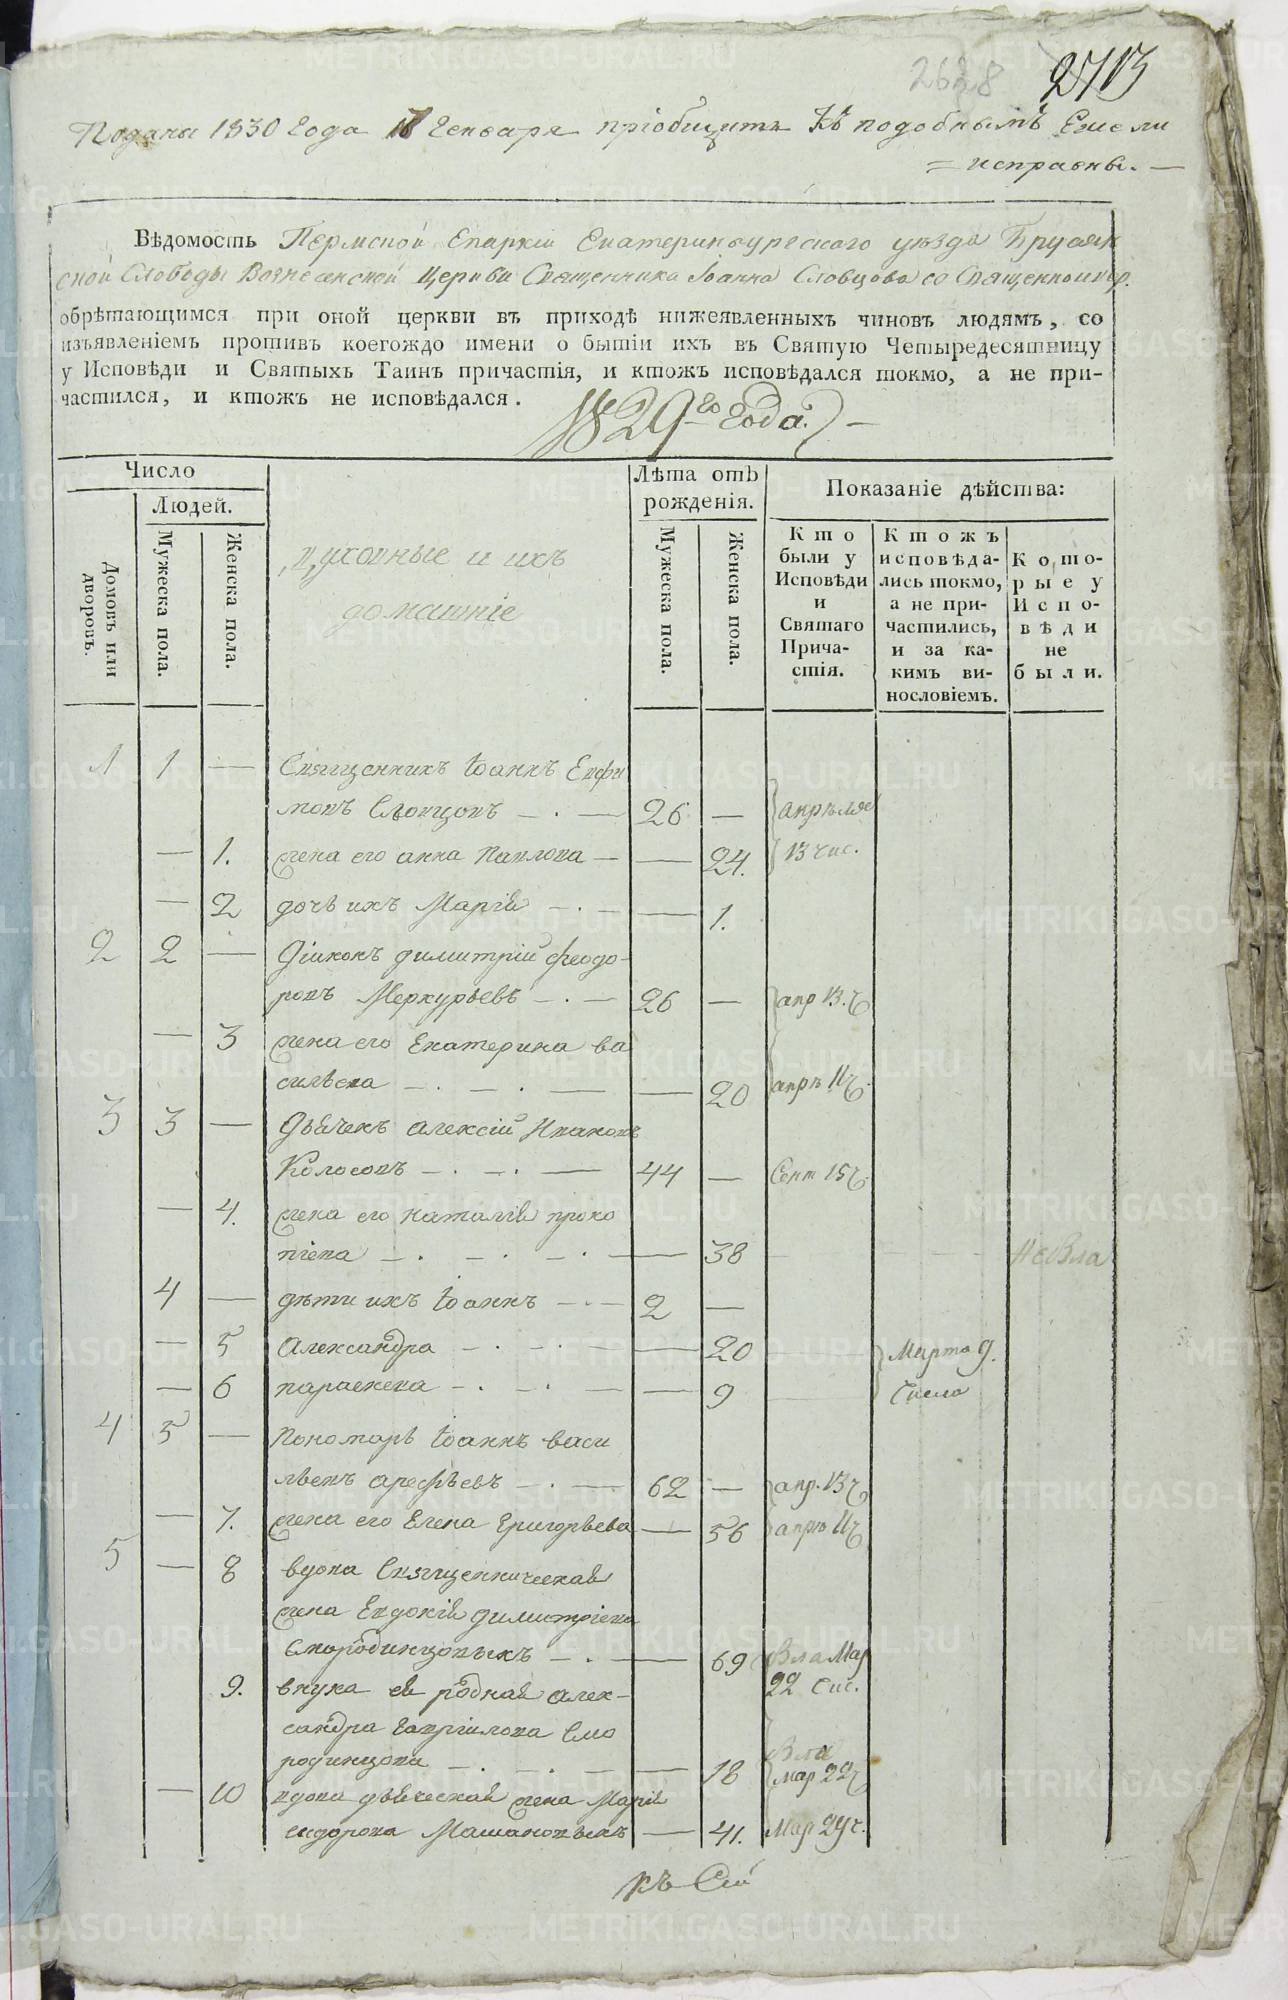 2628 2713
Поданы 1830 Года 18 Генваря пріобщить Къ подобнымъ Ежели
= исправны. —
Вѣдомость Пермской Епархіи Екатеринбургскаго уѣзда Брусян
ской Слободы Вознесенской Церкви Священника Іоанна Словцова со Священноцер.
обрѣтающимся при оной церкви въ приходѣ нижеявленныхъ чиновъ людямъ, со
изъявленіемъ противъ коегождо имени о бытіи ихъ въ Святую Четыредесятницу
у Исповѣди и Святыхъ Таинъ причастія, и ктожъ исповѣдался токмо, а не при-
частился, и ктожъ не исповѣдался.
1829го Года.
Число
Людей.
Домовъ или дворовъ.
Мужеска пола.
Женска пола.
Духовные и ихъ
домашніе
Лѣта отъ рожденія.
Мужеска пола.
Женска пола.
Показаніе дѣйства:
Кто были у Исповѣди и Святаго Прича-стія.
Ктожъ исповѣда-лись токмо, а не при-частились, и за ка-кимъ ви-нословіемъ.
Кото-рые у Испо-вѣди не были.
1 1 — Священникъ Іоаннъ Евфи
мовъ Словцовъ — . — 26 — апрѣля
— 1. жена его анна Павлова — — 24. 13 чис.
— 2 дочь ихъ Марія — . — — 1.
2 2 — Діаконъ димитрій феодо-
ровъ Меркурьевъ — . — 26 — апр 13. ч
— 3 жена его Екатерина ва
сильева — . — . — — 20 апрѣ 11 ч.
3 3 — Дьячекъ алексій Ивановъ
Колосовъ — . — . — 44 — Сент 15 ч.
— 4. жена его наталія проко
піева — . — . — . — 38 — — — Не Бла
4 — дѣти ихъ Іоаннъ — . — 2 —
— 5 Александра — . — . — — 20 — Марта 9.
— 6 параскева — . — . — — 9 — Числа
4 5 — Пономарь Іоаннъ васи
льевъ арефьевъ — . — 62 — апр. 13 ч
— 7. жена его Елена Григорьева — 56 апрѣ 11 ч
5 — 8 вдова Священническая
жена Евдокія димитріева
Смородинцовыхъ — . — 69 Бла Мар
22 Чис.
9. внука ея родная алек-
сандра Гавріилова Смо
родинцова — . — . — — 18 Бла
Мар 22 ч
— 10 вдова дьяческая жена Марія
сидорова Машановыхъ — 41. Мар 29 ч.